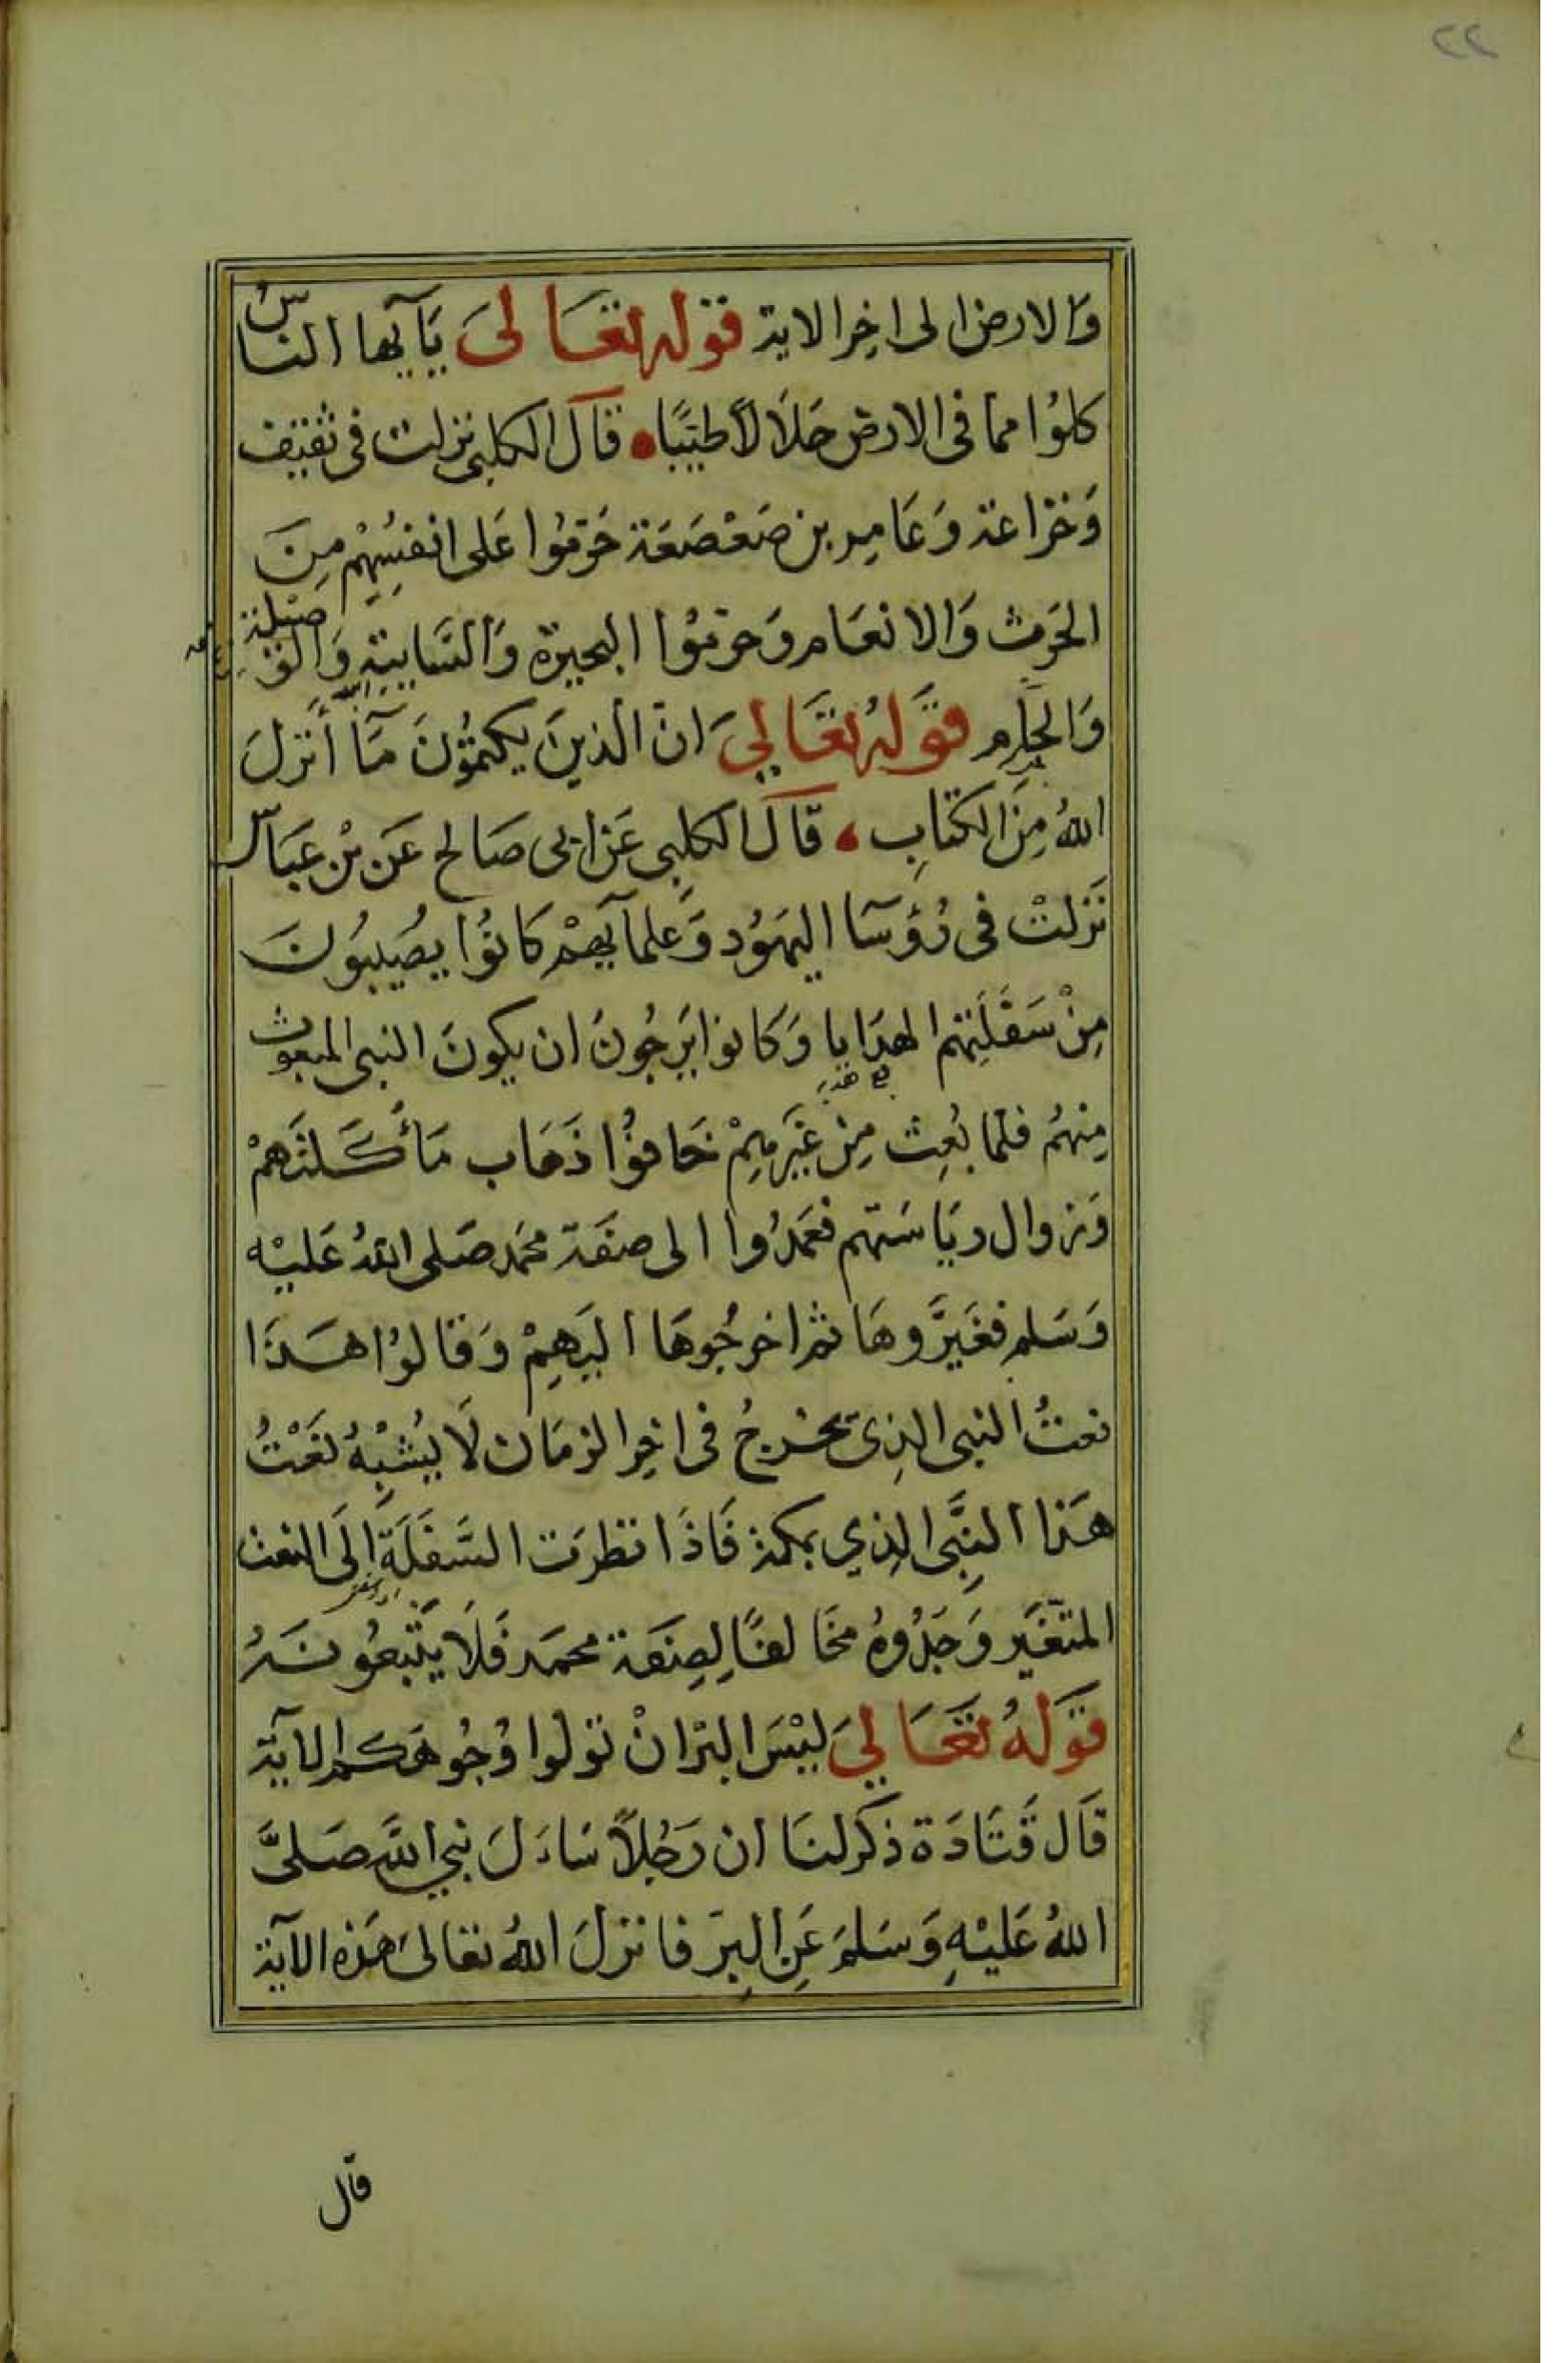 ٢٢
والارض الى اخِر الاية قوله تعَالىَ يَآ يها الناسُ
كلوُا مما فى الارض حَلاَلاً طيّبًا قالَ الكلبى نزلت فى ثقيف
وَخزاعة وَعَامِر بن صَعْصَعَة حَرّمُوا عَلى انفسُِهِمْ مِنَ
الحَرث وَالانعَام وَحرّمُوا البحيرة وَالسَّايبَةِ وَالوَصيلة
وَالحَامِ قوَلهُ تعَالىَ انّ الذينَ يكتمُونَ مَآ أَنزلَ
اللهُ مِنَ الكتابِ قالَ الكلبى عَن ابى صَالح عَن بْن عَبَاس
نَزلتْ فى رُؤسَآ اليهَوُد وَعلمآيهمْ كانوُا يصُيبُونَ
مِنْ سَفَلَتِهم الهدَايا وَكانوا يَرجُونَ ان يكونَ النبى المبعوث
مِنهُم فلما بُعِث مِن غَيرهِمْ خَافوُا ذَهَاب مَأكَلتَهمْ
وَزوال ريَاسَتهم فعَمدُوا الى صفَة محمَد صَلى اللهُ عَليْه
وَسَلم فغَيَّروهَا ثم اخرجُوهَا اليَهِمْ وَقالوُا هَذَا
نعتُ النبى الذِى يخرجُ فى اخِر الزمَان لاَ يُشبْهُ نَعْتُ
هَذا النبَّى الذِي بمكة فَاذَا نظرَت السَّفَلَةِ الَى النعت
المتغَير وَجَدُوهُ مخَالفًا لِصِفَة محمَد فَلاَ يَتّبعُونَهُ
قوَلهُ تعَالىَ ليْسَ البرّ انْ توَلوا وُجُوهَكم الآية
قَال قَتَادَة ذكرلنَا ان رَجُلاً سَاءَلَ نبي اللهَّ صَلىَّ
اللهُ عَليْهِ وَسَلمَ عَنِ البِرّ فانزلَ اللهُ تعالىَ هَذه الآية
قال